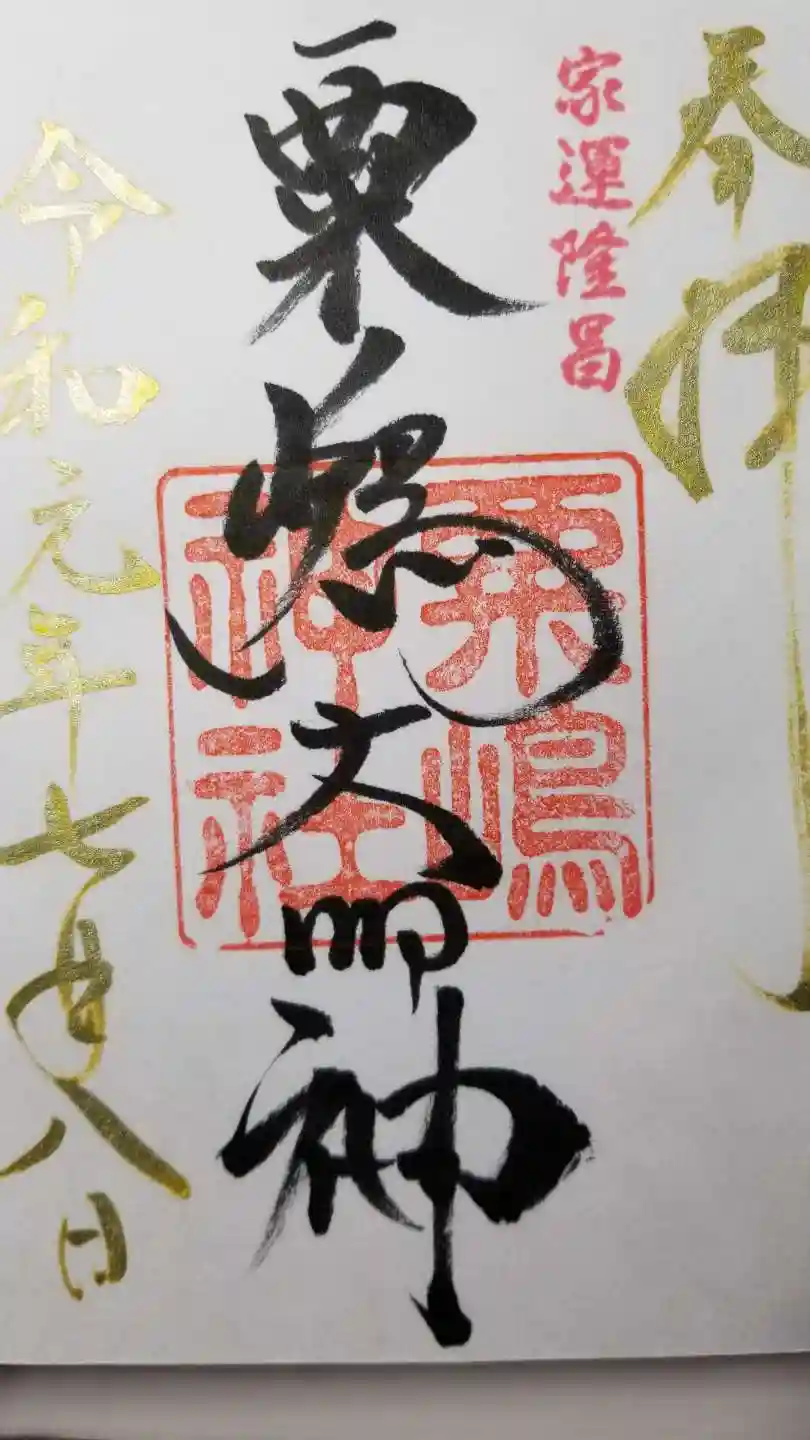 奉拝
家運隆昌
粟嶋大明神
粟嶋
神社
令和元年七月八日